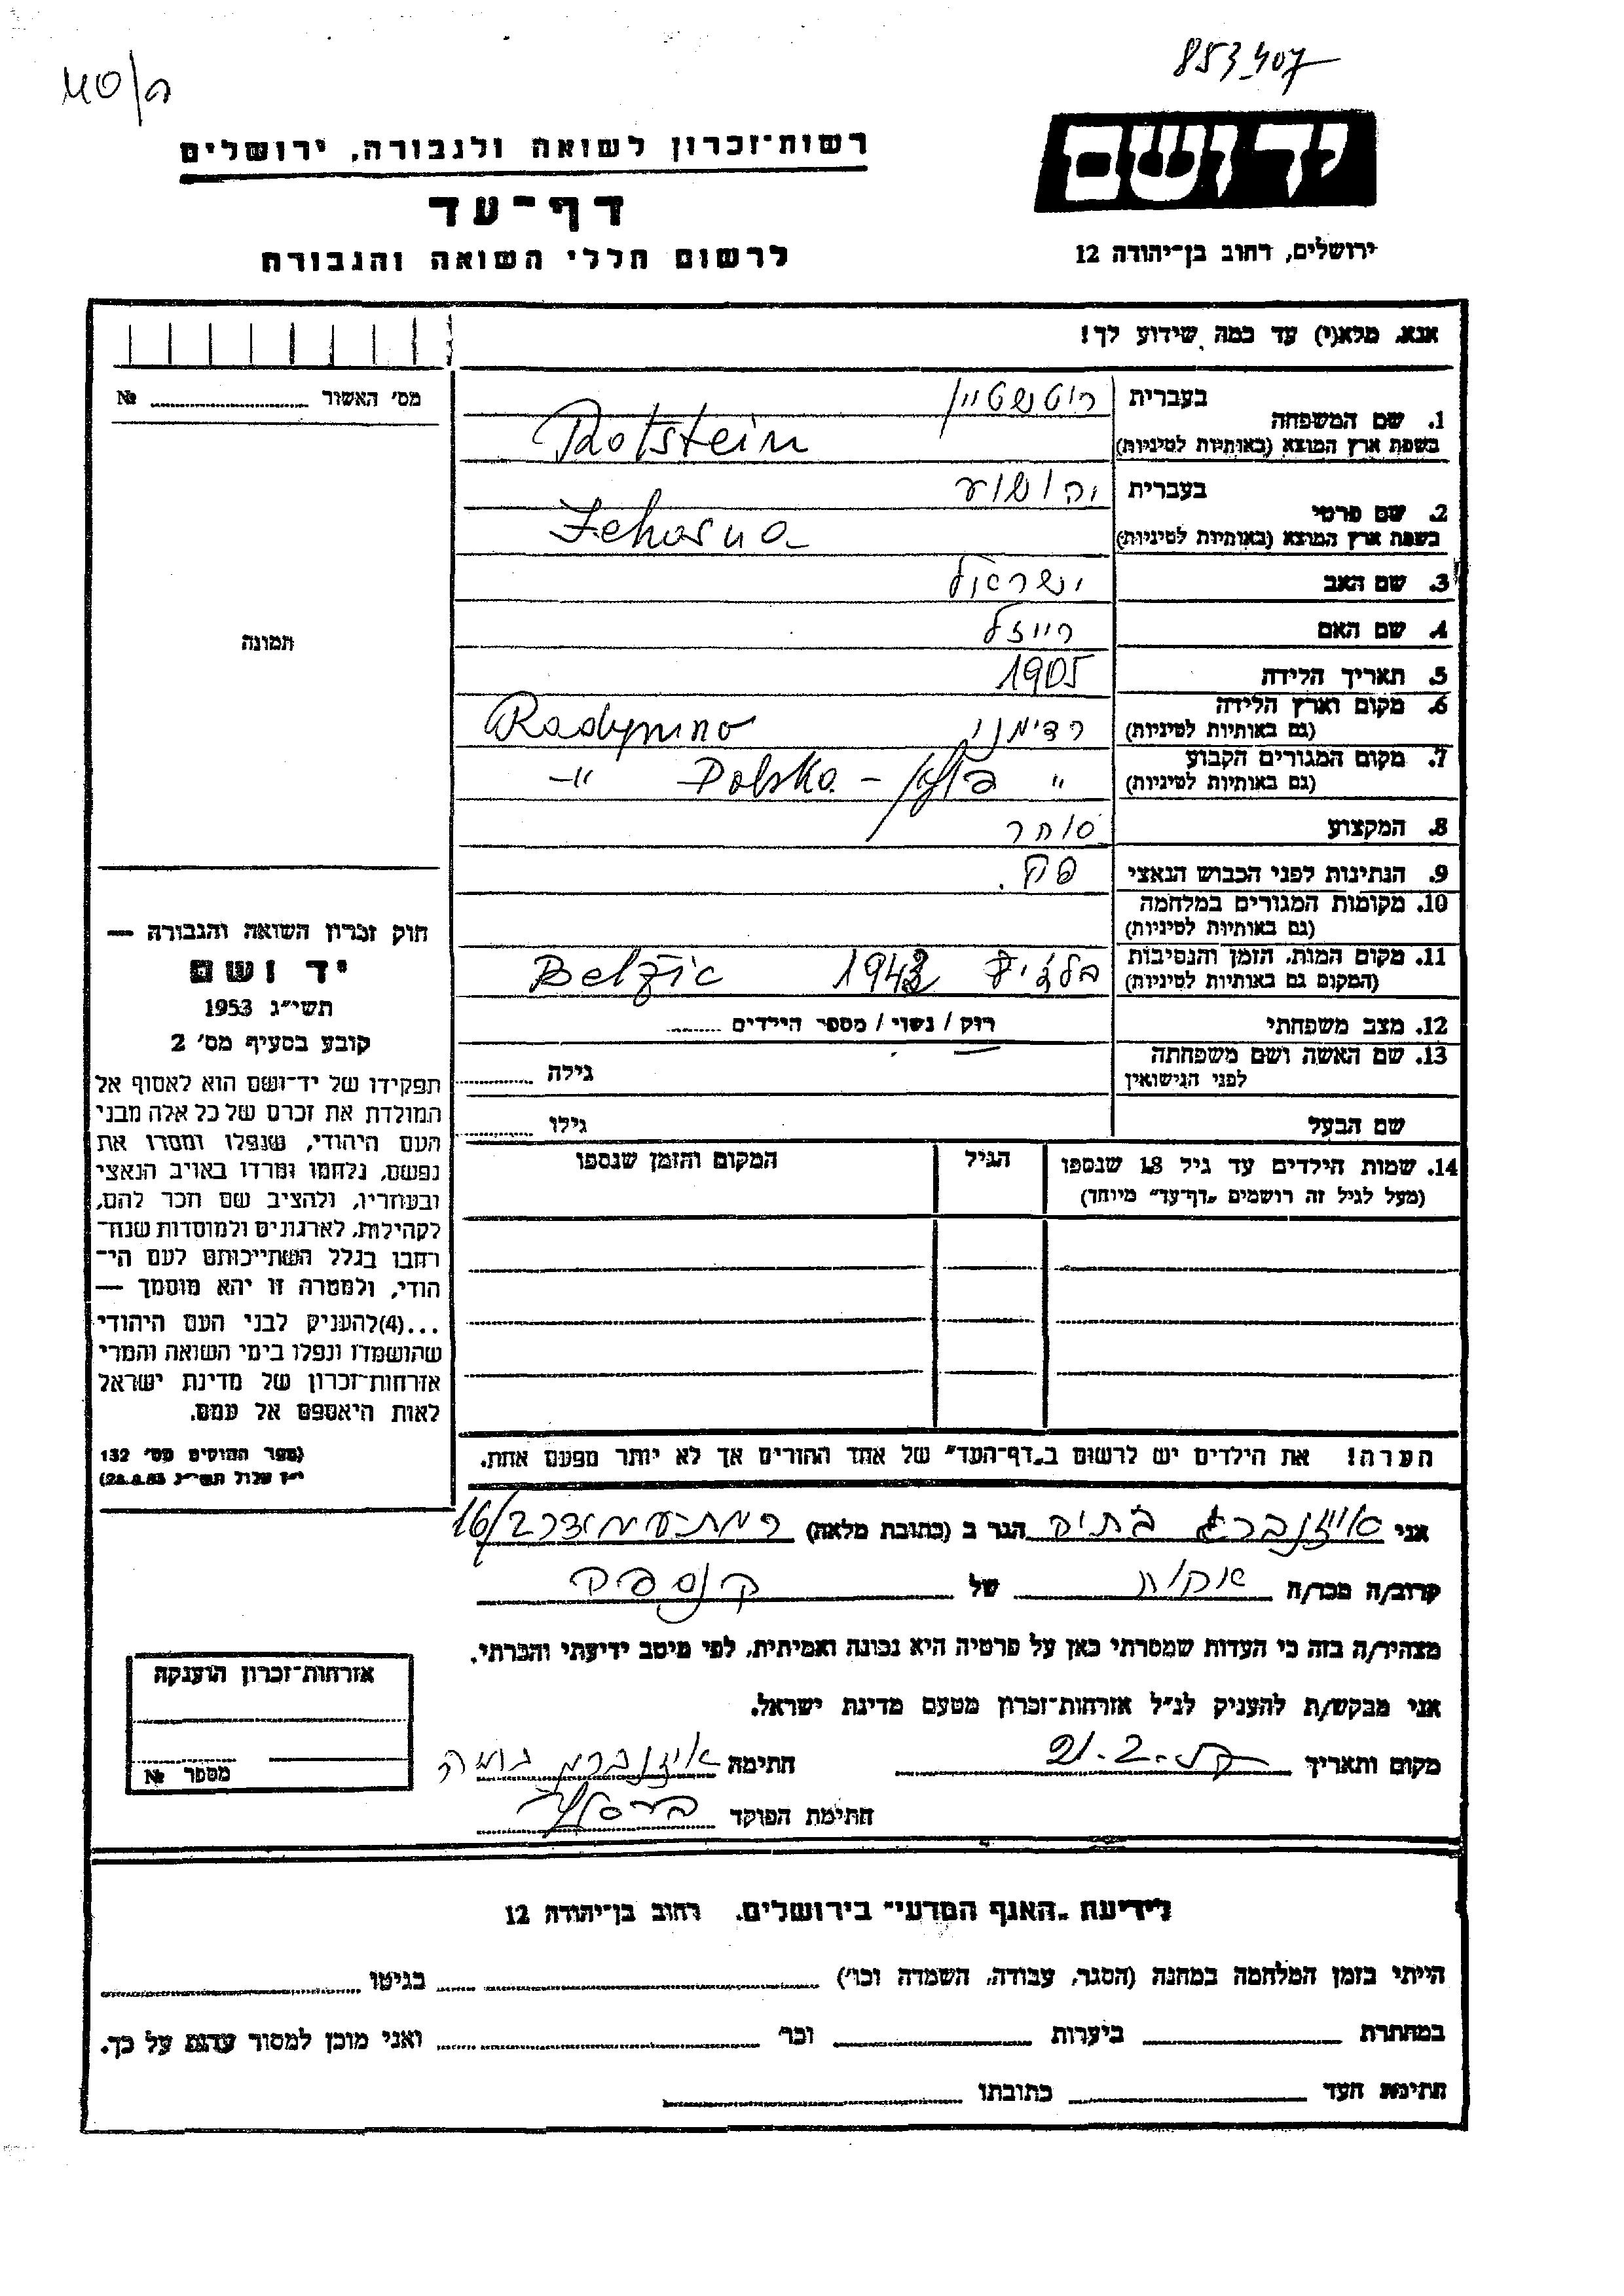 853407
ס/ה
יד ושם
ירושלים, רחוב בן־יהודה 12
רשות־זכרון לשואה ולגבורה, ירושלים
דף־עד
לרשום חללי השואה והגבורה
אנא, מלא(י) עד כמה שידוע לך!
מס' האשור № 
1. שם המשפחה
בעברית רוטשטיין
בשפת ארץ המוצא (באותיות לטיניות) Rotstein
2. שם פרטי
בעברית יהושוע
בשפת ארץ המוצא (באותיות לטיניות) Jehosua
3. שם האב ישראל
4. שם האם רייזל
5. תאריך הלידה 1905
6. מקום וארץ הלידה
(גם באותיות לטיניות) רדימנו Radymno
7. מקום המגורים הקבוע
(גם באותיות לטיניות) " פולין - Polska -"
8. המקצוע סוחר
9. הנתינות לפני הכבוש הנאצי פול.
10. מקומות המגורים במלחמה
(גם באותיות לטיניות)
11. מקום המות, הזמן והנסיבות
(המקום גם באותיות לטיניות) Belzic
12. מצב משפחתי רוק / נשוי / מספר הילדים
13. שם האשה ושם משפחתה
לפני הנישואין גילה
שם הבעל גילו
14. שמות הילדים עד גיל 18 שנספו הגיל המקום והזמן שנספו
(מעל לגיל זה רושמים „דף־עד" מיוחד)
הערה! את הילדים יש לרשום ב„דף־העד" של אחד ההורים אך לא יותר מפעם אחת.
תמונה
חוק זכרון השואה והגבורה —
יד ושם
תשי"ג 1953
קובע בסעיף מס' 2
תפקידו של יד־ושם הוא לאסוף אל
המולדת את זכרם של כל אלה מבני
העם היהודי, שנפלו ומסרו את
נפשם, נלחמו ומרדו באויב הנאצי
ובעוזריו, ולהציב שם וזכר להם,
לקהילות, לארגונים ולמוסדות שנח־
רבו בגלל השתייכותם לעם הי־
הודי, ולמטרה זו יהא מוסמך —
...(4)להעניק לבני העם היהודי
שהושמדו ונפלו בימי השואה והמרי
אזרחות־זכרון של מדינת ישראל
לאות היאספם אל עמם.
(ספר החוקים מס' 132
י"ז אלול תשי"ג 28.8.53)
אני איזנברג הגר ב (כתובת מלאה) 16/
קרוב/ה מכר/ה אחות של הנספה
מצהיר/ה בזה כי העדות שמסרתי כאן על פרטיה היא נכונה ואמיתית, לפי מיטב ידיעתי והכרתי.
אני מבקש/ת להעניק לנ"ל אזרחות־זכרון מטעם מדינת ישראל.
מקום ותאריך חתימה איזנברג
חתימת הפוקד
אזרחות־זכרון הוענקה
מספר №
לידיעת „האגף המדעי" בירושלים, רחוב בן־יהודה 12
הייתי בזמן המלחמה במחנה (הסגר, עבודה, השמדה וכו') בגיטו
במחתרת ביערות וכו' ואני מוכן למסור עדות על כך.
חתימת העד כתובתו